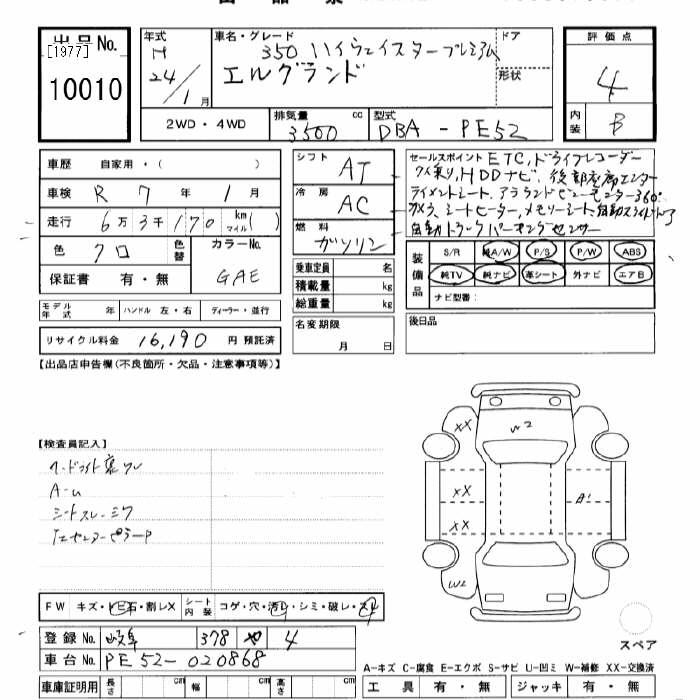 出品No.
[1977]
10010
年式
H
24/1月
車名・グレード
350 ハイウェイスタープレミアム
エルグランド
ドア
形状
評価点
4
内装
B
2WD・4WD
排気量 3500 cc
型式 DBA-PE52
車歴 自家用・( )
車検 R 7 年 1 月
走行 6万3千170 km マイル( )
色 クロ
色替
カラーNo. GAE
保証書 有・無
モデル年式 年
ハンドル 左・右
ディーラー・並行
リサイクル料金 16,190 円 預託済
シフト AT
冷房 AC
燃料 ガソリン
乗車定員 名
積載量 kg
総重量 kg
名変期限
月 日
セールスポイント ETC,ドライブレコーダー
HDDナビ,後部座席モニター
シートヒーター,メモリーシート
装備品
S/R 純A/W P/S P/W ABS
純TV 純ナビ 革シート 外ナビ エアB
ナビ型番:
後日品
【出品店申告欄(不良箇所・欠品・注意事項等)】
【検査員記入】
A-U
FW キズ・トビ石・割レX
シート内装 コゲ・穴・汚レ・シミ・破レ・スレ
登録No. 岐阜 378 や 4
車台No. PE52-020868
車庫証明用 長さ cm 幅 cm 高さ cm
XX
W2
XX
XX
A1
W2
スペア
A-キズ C-腐食 E-エクボ S-サビ U-凹ミ W-補修 XX-交換済
工具 有・無 ジャッキ 有・無